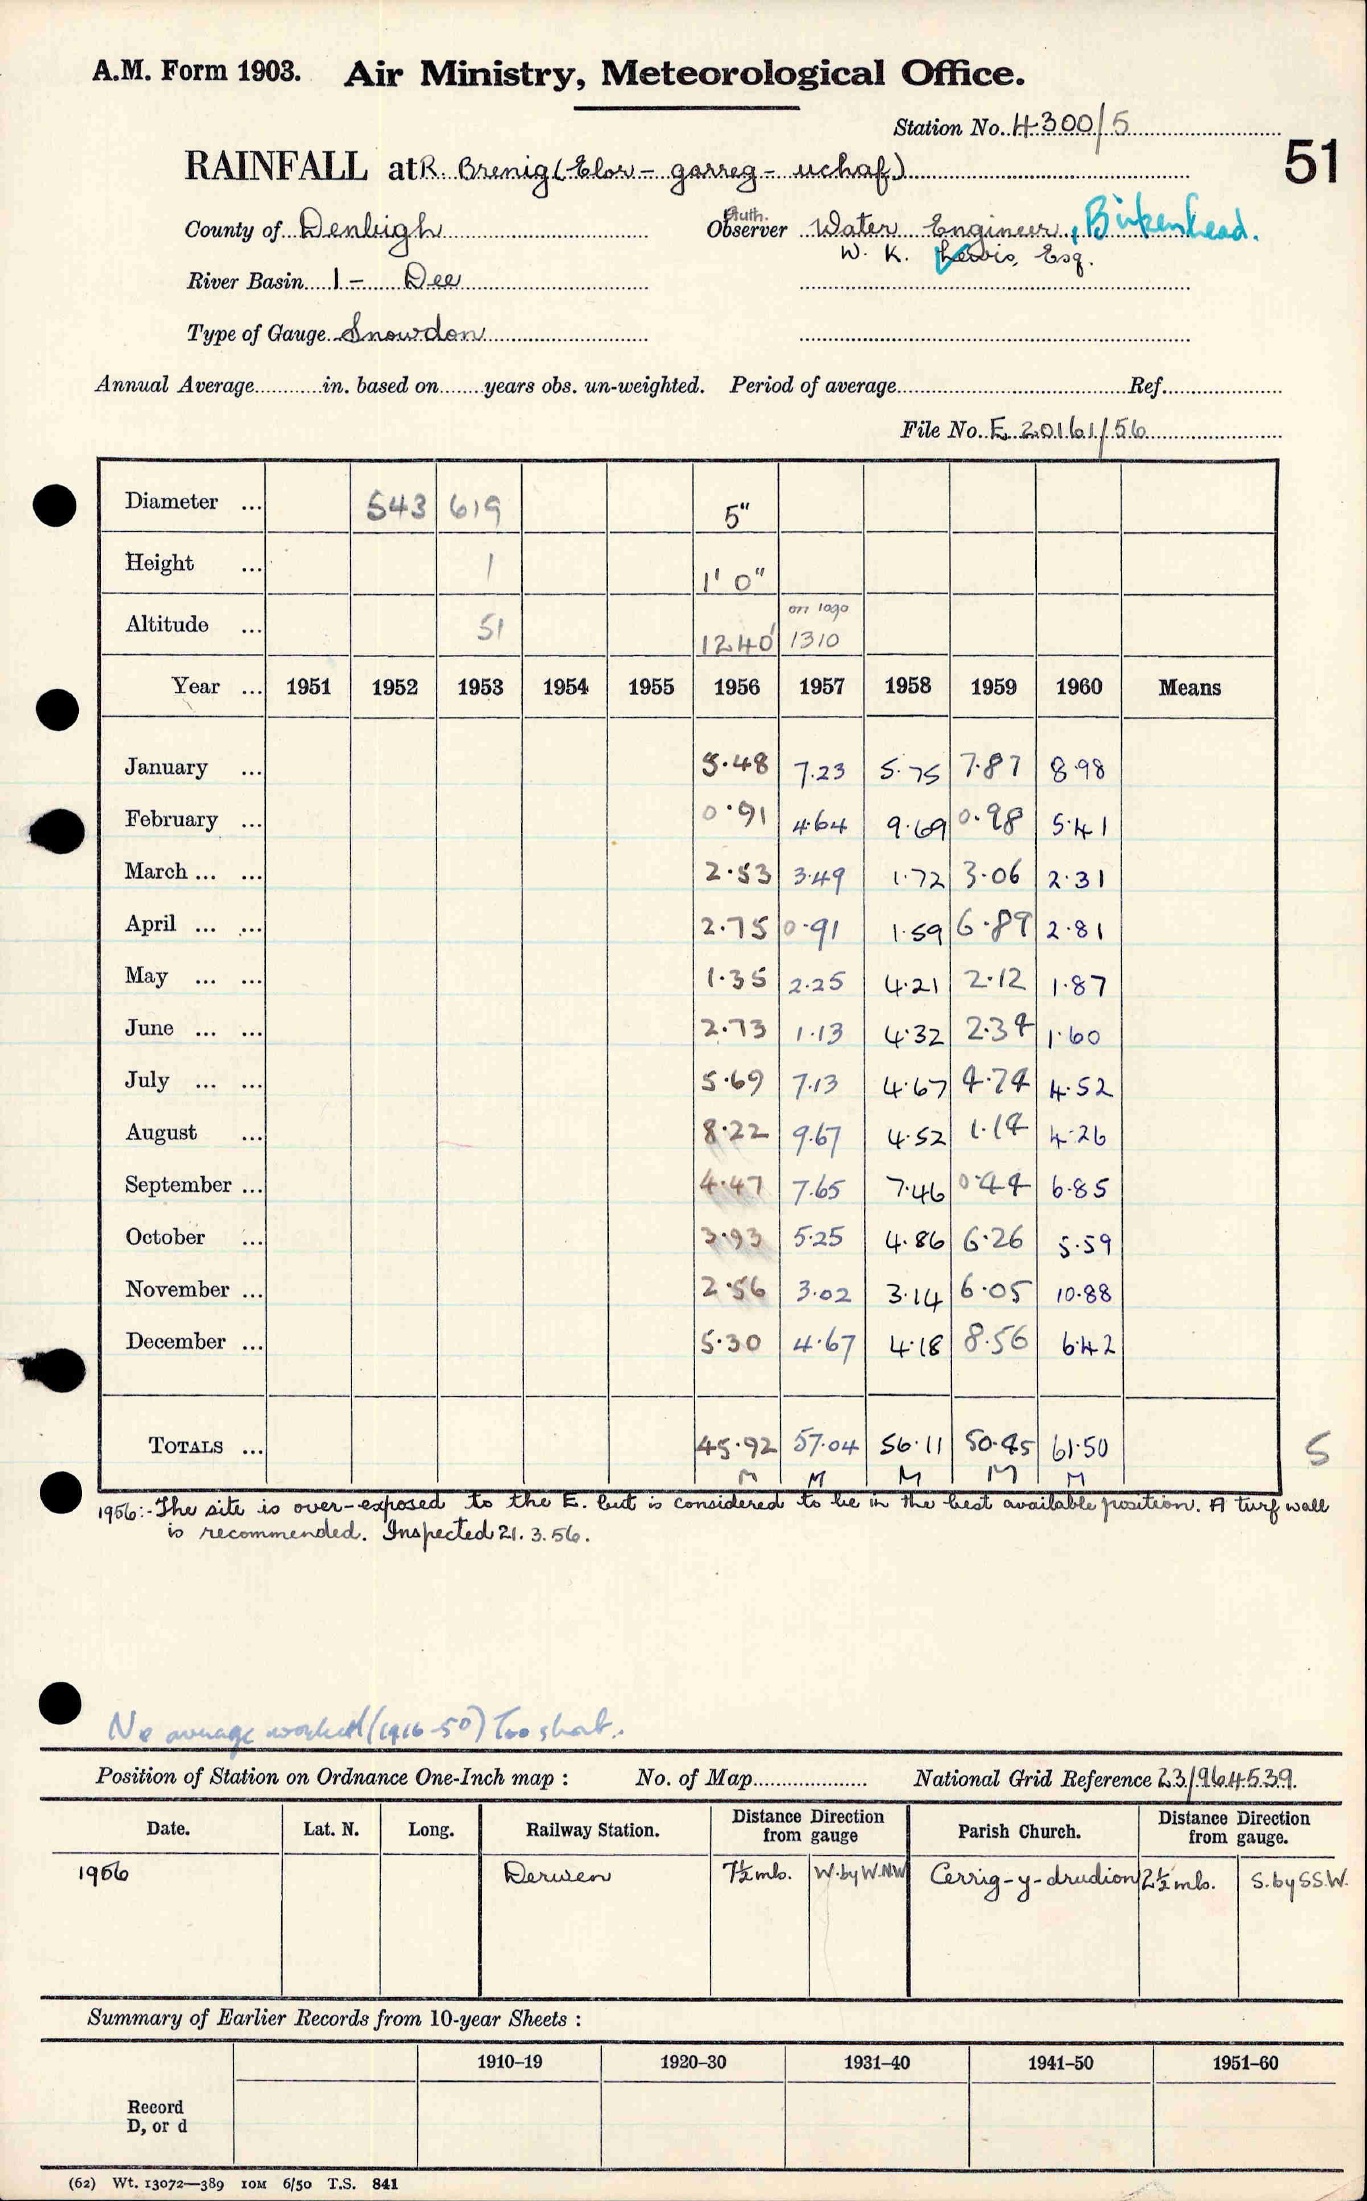 A.M. Form 1903. Air Ministry, Meteorological Office.
Station No. 4300/5
51
RAINFALL at R. Brenig (Elor - garreg - uchaf)
County of Denbigh
Auth. Observer Water Engineer, Birkenhead.
W. K. Lewis, Esq.
River Basin 1 - Dee
Type of Gauge Snowdon
Annual Average.......in. based on.......years obs. un-weighted. Period of average.......Ref.......
File No. E 20161/56
Diameter ... 543 619 5"
Height ... 1 1' 0"
Altitude ... 51 1240' 1310
Year ... 1951 1952 1953 1954 1955 1956 1957 1958 1959 1960 Means
January ... 5.48 7.23 5.75 7.87 8.98
February ... 0.91 4.64 9.69 0.98 5.41
March ... ... 2.53 3.49 1.72 3.06 2.31
April ... ... 2.75 0.91 1.59 6.89 2.81
May ... ... 1.35 2.25 4.21 2.12 1.87
June ... ... 2.73 1.13 4.32 2.34 1.60
July ... ... 5.69 7.13 4.67 4.74 4.52
August ... 8.22 9.67 4.52 1.14 4.26
September ... 4.47 7.65 7.46 0.44 6.85
October ... 3.93 5.25 4.86 6.26 5.59
November ... 2.56 3.02 3.14 6.05 10.88
December ... 5.30 4.67 4.18 8.56 6.42
TOTALS ... 45.92 57.04 56.11 50.45 61.50 5
M M M M M
1956:- The site is over-exposed to the E. but is considered to be in the best available position. A turf wall
is recommended. Inspected 21.3.56.
No average worked (1916-50) Too short.
Position of Station on Ordnance One-Inch map : No. of Map....... National Grid Reference 23/964539.
Date. Lat. N. Long. Railway Station. Distance Direction from gauge Parish Church. Distance Direction from gauge.
1956 Derwen 7½ mls. W. by W.N.W Cerrig-y-drudion 2½ mls. S. by S.S.W.
Summary of Earlier Records from 10-year Sheets :
1910–19 1920–30 1931–40 1941–50 1951–60
Record
D, or d
(62) Wt. 13072—389 10M 6/50 T.S. 841